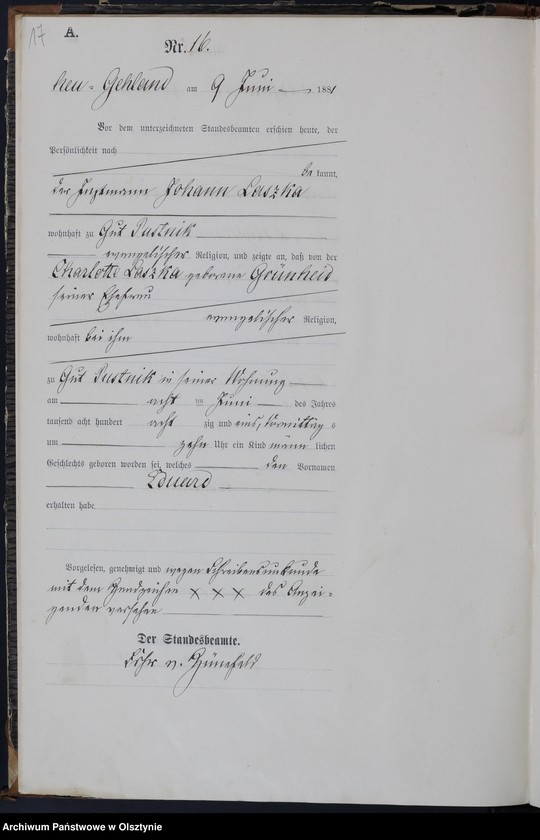 17
A.
Nr. 16.
Neu-Gehland am 9 Juni 1881
Vor dem unterzeichneten Standesbeamten erschien heute, der
Persönlichkeit nach
be kannt,
der Instmann Johann Laszka
wohnhaft zu Gut Pustnik
evangelischer Religion, und zeigte an, daß von der
Charlotte Laszka geborene Grünheid
seiner Ehefrau
evangelischer Religion,
wohnhaft bei ihm
zu Gut Pustnik in seiner Wohnung
am acht ten Juni des Jahres
tausend acht hundert acht zig und eins, Vormittag s
um zehn Uhr ein Kind männ lichen
Geschlechts geboren worden sei, welches den Vornamen
Eduard
erhalten habe
Vorgelesen, genehmigt und wegen Schreibensunkunde
mit dem Handzeichen X X X des Anzei-
genden versehen
Der Standesbeamte.
v. Hünefeld
Archiwum Państwowe w Olsztynie